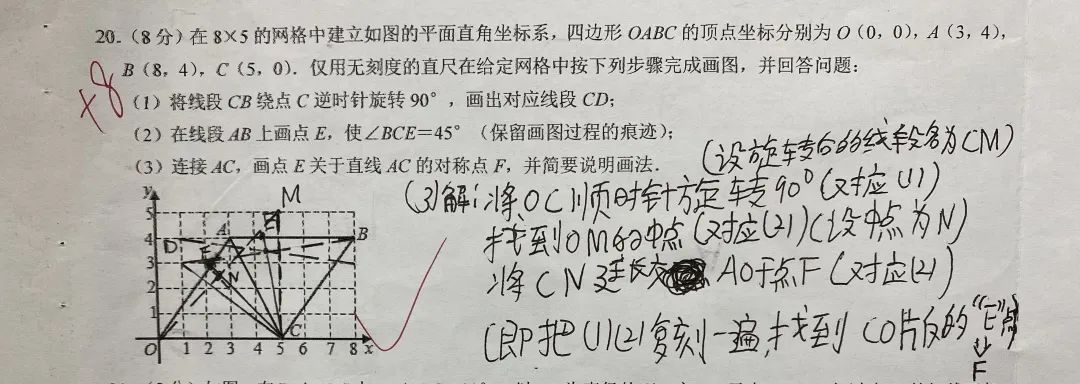 20.(8分)在8×5的网格中建立如图的平面直角坐标系,四边形OABC的顶点坐标分别为O(0,0),A(3,4),
B(8,4),C(5,0).仅用无刻度的直尺在给定网格中按下列步骤完成画图,并回答问题:
+8
(1)将线段CB绕点C逆时针旋转90°,画出对应线段CD;
(2)在线段AB上画点E,使∠BCE=45°(保留画图过程的痕迹);
(3)连接AC,画点E关于直线AC的对称点F,并简要说明画法.
(设旋转后的线段名为CM)
(3)解:将OC顺时针方旋转90°(对应(1))
找到OM的中点(对应(2))(设中点为N)
将CN延长交 AO于点F(对应(2))
(即把(1)(2)复刻一遍,找到CO片反的"E"点)
F
y
M
5
4 D A E B
3 E
2 N
1
O 1 2 3 4 5 6 7 8 x
C